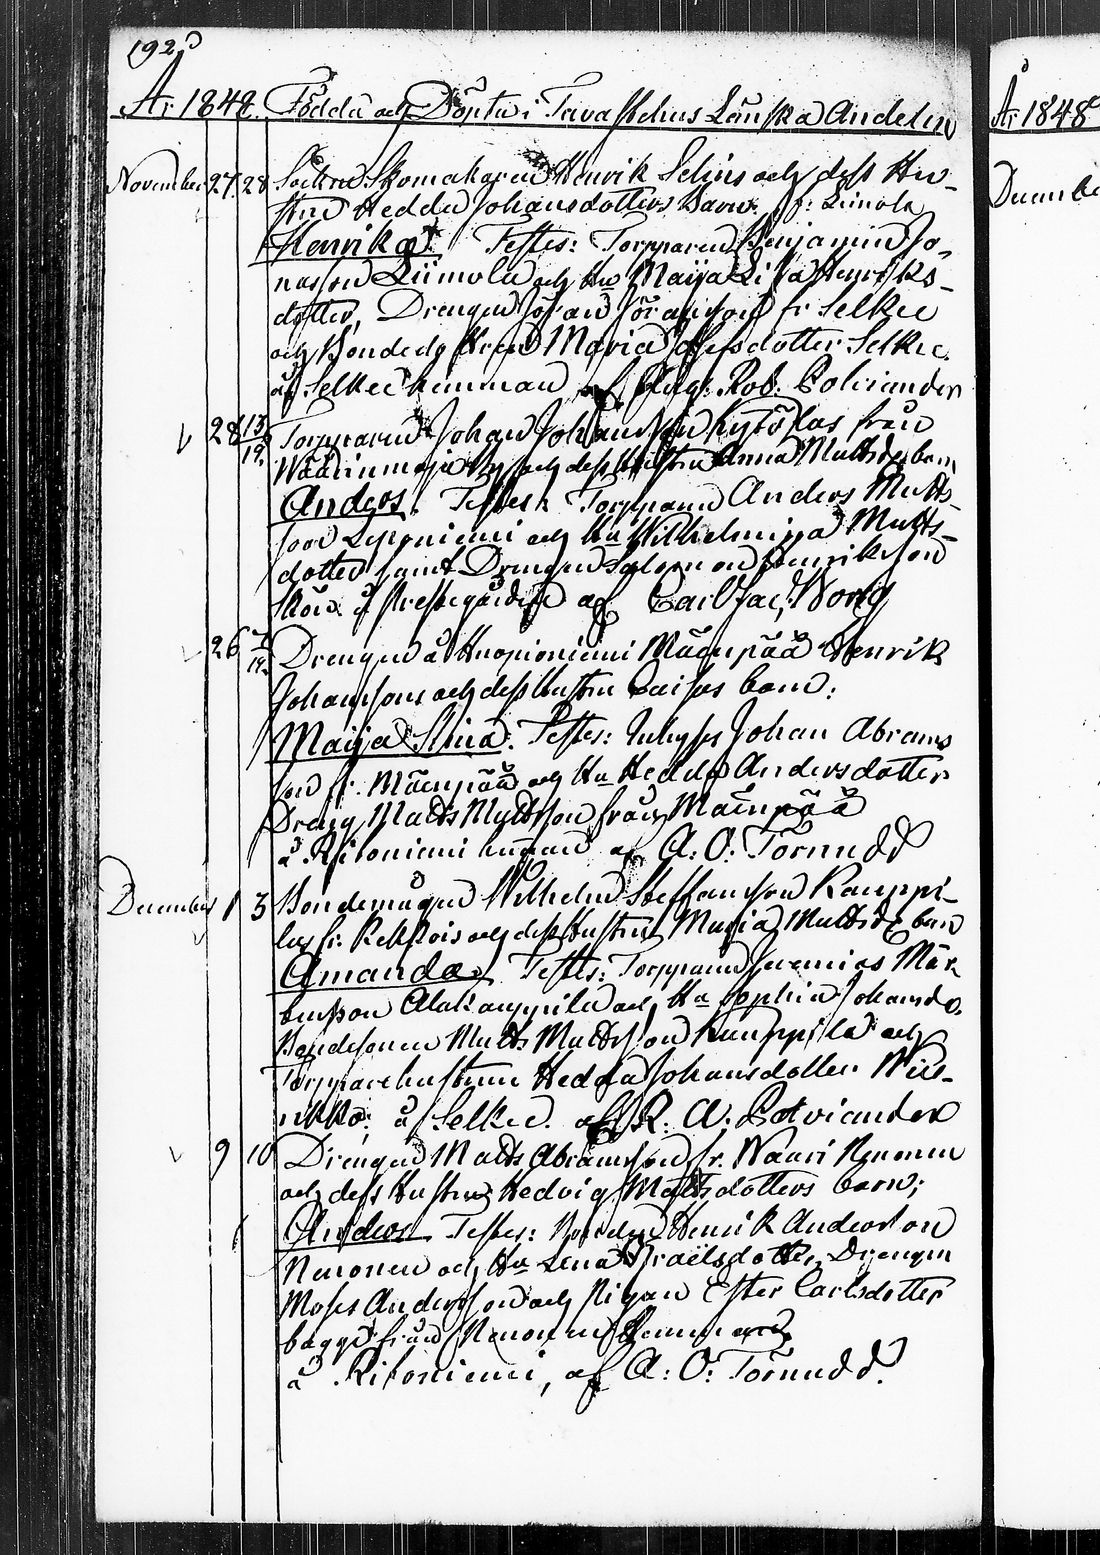 192
År 1848. Födda och Döpta i Tavastehus Länska Andelen
År 1848
November 27. 28 Sockne Skomakaren Henrik Selins och dess Hu-
stru Hedda Johansdotters Barn. fr: Liimola
Henrika. Testes: Torpparen Benjamin Jo-
nasson Liimola och Hu Maija Lisa Henriks-
dotter, Drengen Johan Göransson fr Selkee
och Bonde Maria dotter Selkee.
å Selkee hemman af Rob:
28 13/19. Torpparen Johan Johansson Kytölas från
och dess Hustru Anna Mattsd: barn
Anders. Testes: Torpparen Anders Matts-
son Leponiemi och Hu Wilhelmina Matts-
dotter samt Drengen Salomon Henriksson
å Prestegården af Carl Jac: Wong
26 Drengen å Kuopioniemi Mäenpää Henrik
Johanssons och dess Hustru Caisas barn:
Maija Stina. Testes: Inhyses Johan Abrams
son fr. Mäenpää och Hu Hedda Andersdotter
Dreng Matts Mattsson från Mäenpää
å Ritoniemi hemman af A: O: Törnudd
December 1 3 Bondemågen Wilhelm Staffansson Kauppi-
las fr. och dess Hustru Maria Mattsd: barn
Amanda. Testes: Torpparen Jeremias
son Alakauppila och Hu Sophia Johansd:
Bondesonen Matts Mattsson Kauppila och
Torpparehustrun Hedda Johansdotter
å Selkee. af R. A:
Decembe
9 10 Drengen Matts Abramsson fr. Nenonen
och dess Hustru Hedvig Mattsdotters barn;
Anders. Testes: Bonden Henrik Andersson
Nenonen och Hu Lena Israelsdotter, Drengen
Moses Andersson och Pigan Ester Carlsdotter
bägge från Nenonen Hemman
å Ritoniemi, af A: O: Törnudd.